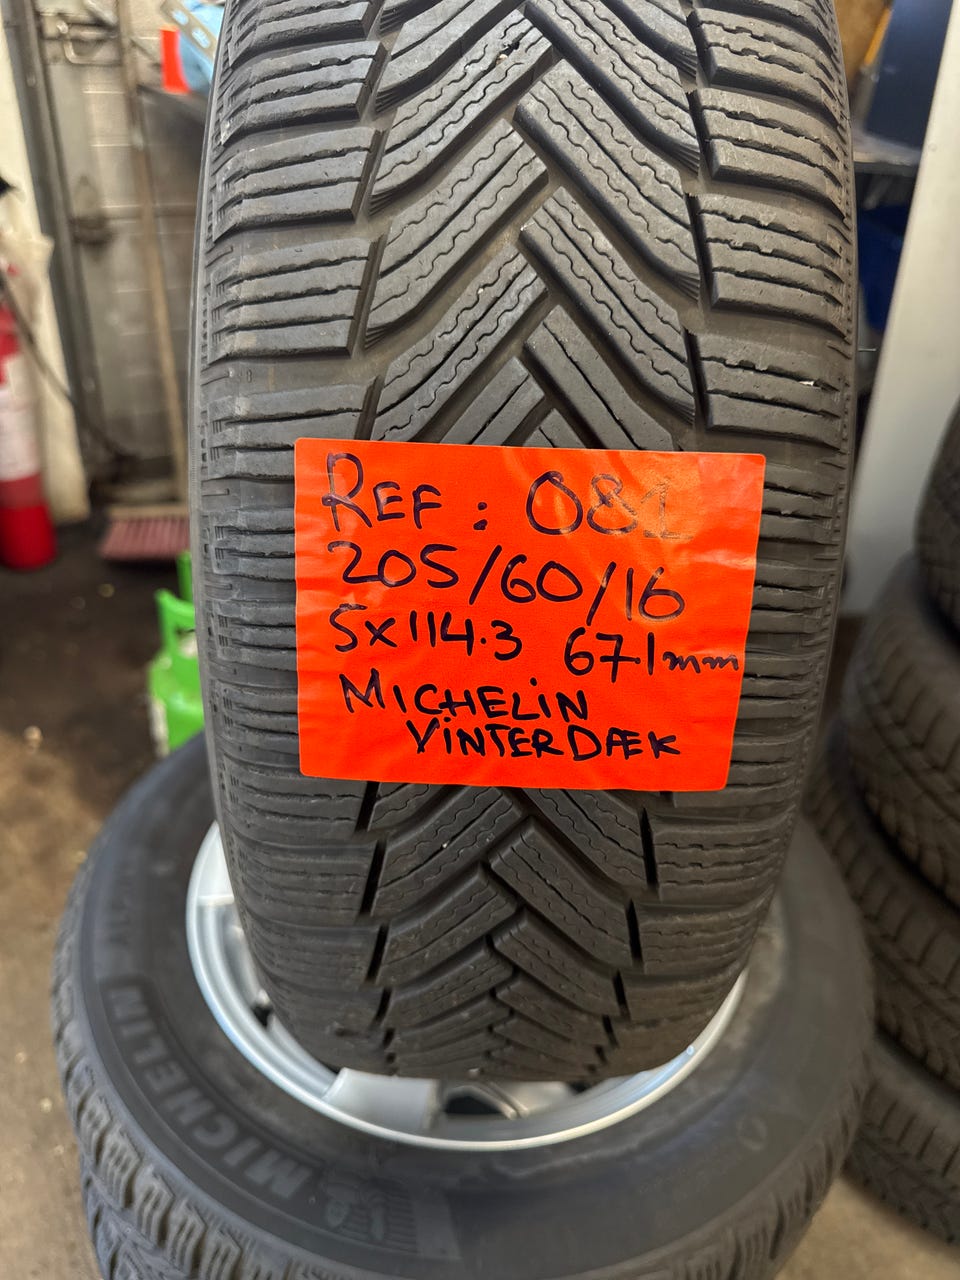 REF : 081
205/60/16
5x114.3 67.1mm
MICHELIN
VINTERDÆK
MICHELIN